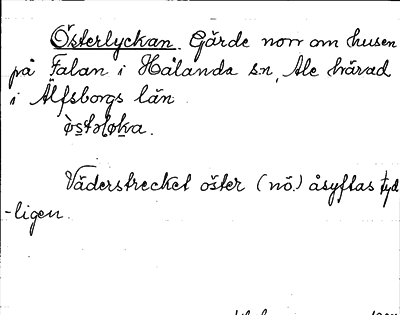 Österlyckan. Gärde norr om husen
på Falan i Hålanda sn, Ale härad
i Älfsborgs län

Väderstrecket öster (nö.) åsyftas tyd
-ligen.